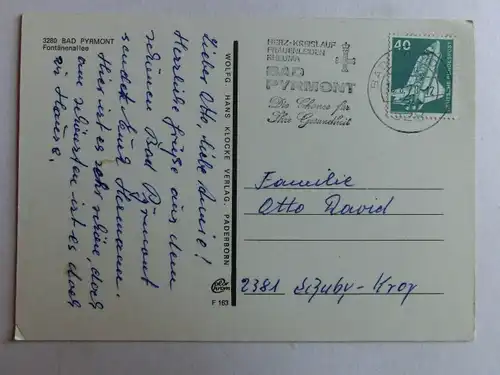 3280 BAD PYRMONT
Fontänenallee
Lieber Otto, liebe Annie!
Herzliche Grüße aus dem
schönen Bad Pyrmont
sendet Euch Hermann.
Hier ist es sehr schön, doch
am schönsten ist es doch
zu Hause.
WOLFG. HANS KLOCKE VERLAG, PADERBORN
F 163
HERZ-KREISLAUF
FRAUENLEIDEN
RHEUMA
BAD
PYRMONT
Die Chance für
Ihre Gesundheit
40
DEUTSCHE BUNDESPOST
Familie
Otto David
2381 Schuby-Krog